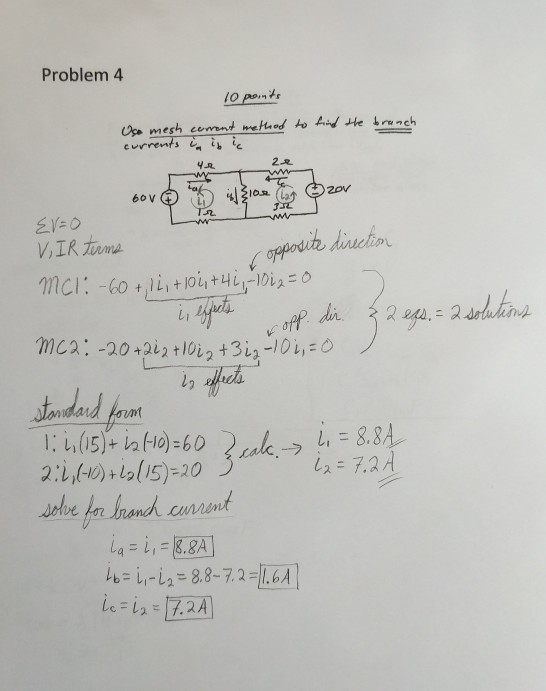 Problem 4
10 points
Use mesh current method to find the branch
currents ia ib ic
4Ω 2Ω
ia ic
60V i1 ib 10Ω i2 20V
1Ω 3Ω
ΣV=0
V, IR terms
opposite direction
MC1: -60 + 1i1 + 10i1 + 4i1 - 10i2 = 0
i1 effects
opp. dir.
2 eqs. = 2 solutions
MC2: -20 + 2i2 + 10i2 + 3i2 - 10i1 = 0
i2 effects
standard form
1: i1(15) + i2(-10) = 60
2: i1(-10) + i2(15) = 20
calc. → i1 = 8.8A
i2 = 7.2A
solve for branch current
ia = i1 = 8.8A
ib = i1 - i2 = 8.8 - 7.2 = 1.6A
ic = i2 = 7.2A